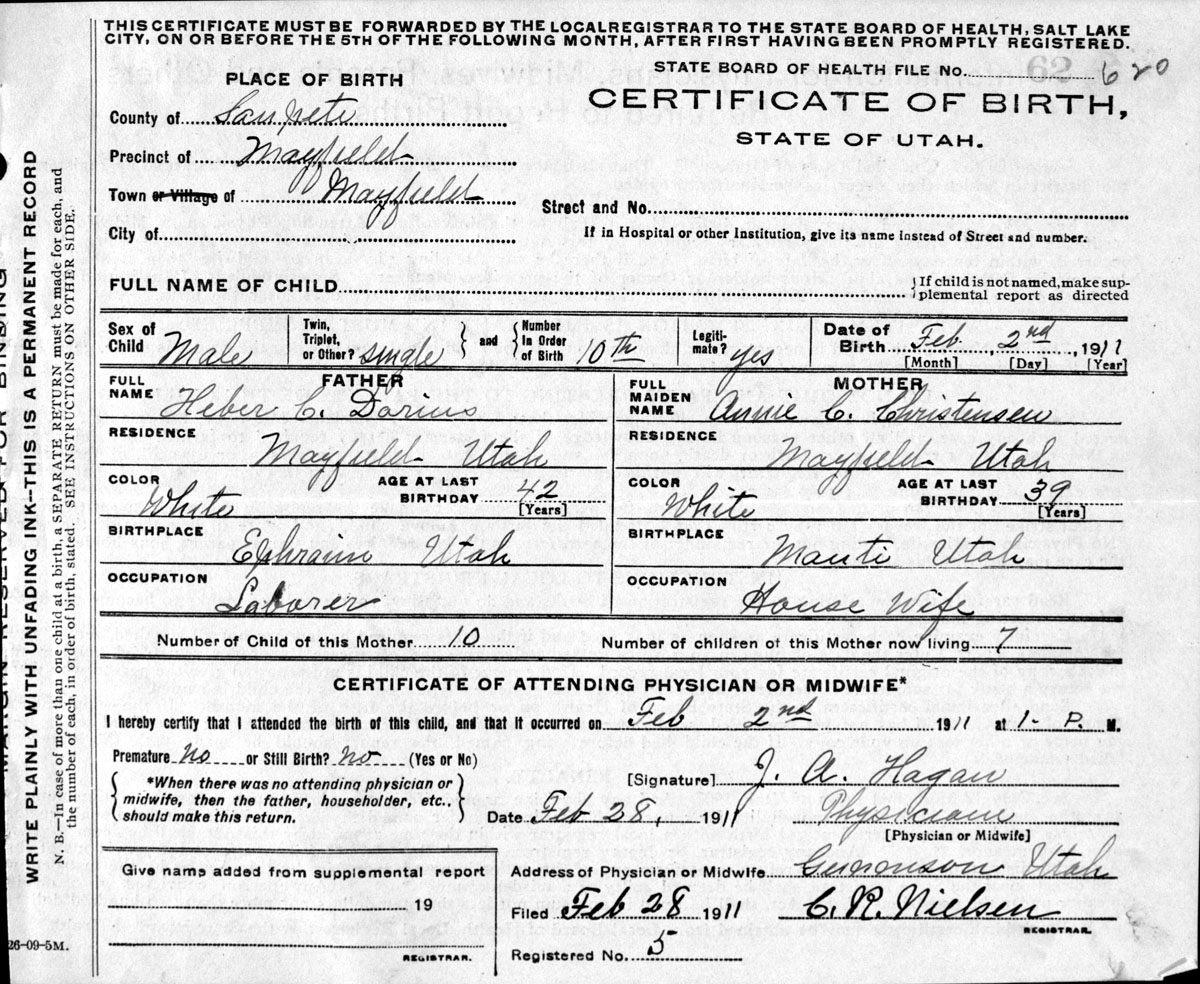 THIS CERTIFICATE MUST BE FORWARDED BY THE LOCAL REGISTRAR TO THE STATE BOARD OF HEALTH, SALT LAKE
CITY, ON OR BEFORE THE 5TH OF THE FOLLOWING MONTH, AFTER FIRST HAVING BEEN PROMPTLY REGISTERED.
WRITE PLAINLY WITH UNFADING INK--THIS IS A PERMANENT RECORD
N. B.—In case of more than one child at a birth, a SEPARATE RETURN must be made for each, and
the number of each, in order of birth, stated. SEE INSTRUCTIONS ON OTHER SIDE.
STATE BOARD OF HEALTH FILE No. 620
PLACE OF BIRTH
CERTIFICATE OF BIRTH,
STATE OF UTAH.
County of Sanpete
Precinct of Mayfield
Town or Village of Mayfield
Street and No.
City of
If in Hospital or other Institution, give its name instead of Street and number.
FULL NAME OF CHILD
If child is not named, make sup-
plemental report as directed
Sex of Child Male
Twin, Triplet, or Other? single
and
Number In Order of Birth 10th
Legiti- mate? yes
Date of Birth Feb. 2nd, 1911
[Month] [Day] [Year]
FATHER
FULL NAME Heber C. Dorius
MOTHER
FULL MAIDEN NAME Annie C. Christensen
RESIDENCE Mayfield Utah
RESIDENCE Mayfield Utah
COLOR White AGE AT LAST BIRTHDAY 42 [Years]
COLOR White AGE AT LAST BIRTHDAY 39 [Years]
BIRTHPLACE Ephraim Utah
BIRTHPLACE Manti Utah
OCCUPATION Laborer
OCCUPATION House Wife
Number of Child of this Mother 10
Number of children of this Mother now living 7
CERTIFICATE OF ATTENDING PHYSICIAN OR MIDWIFE*
I hereby certify that I attended the birth of this child, and that it occurred on Feb 2nd 1911 at 1- P. M.
Premature No or Still Birth? No (Yes or No)
*When there was no attending physician or
midwife, then the father, householder, etc.,
should make this return.
[Signature] J. A. Hagan
Date Feb 28, 1911 Physician
[Physician or Midwife]
Give name added from supplemental report
19
REGISTRAR.
Address of Physician or Midwife Utah
Filed Feb 28 1911 C. R. Nielsen
REGISTRAR.
Registered No. 5
26-09-5M.